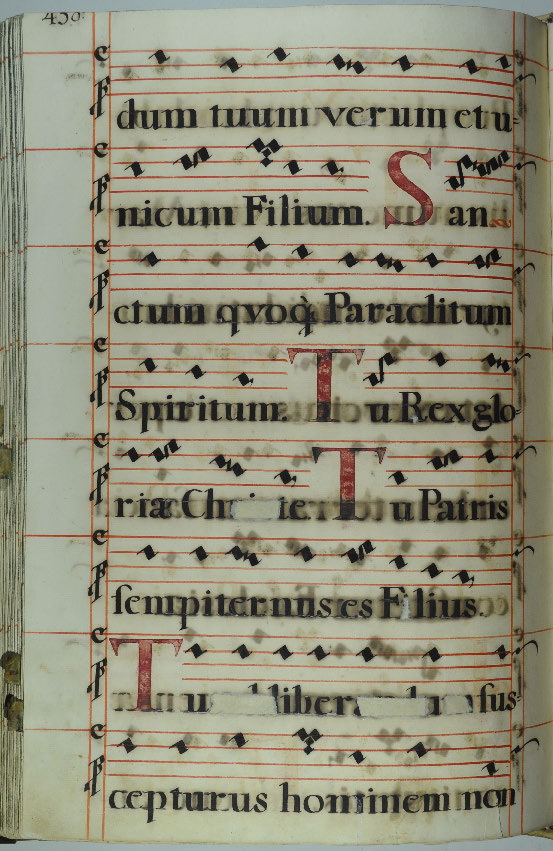 438.
dum tuum verum et u-
nicum Filium. San
ctum quoq̀ Paraclitum
Spiritum. Tu Rex glo-
riæ Ch te Tu Patris
sempiternus es Filius.
Tu liber sus-
cepturus hominem non